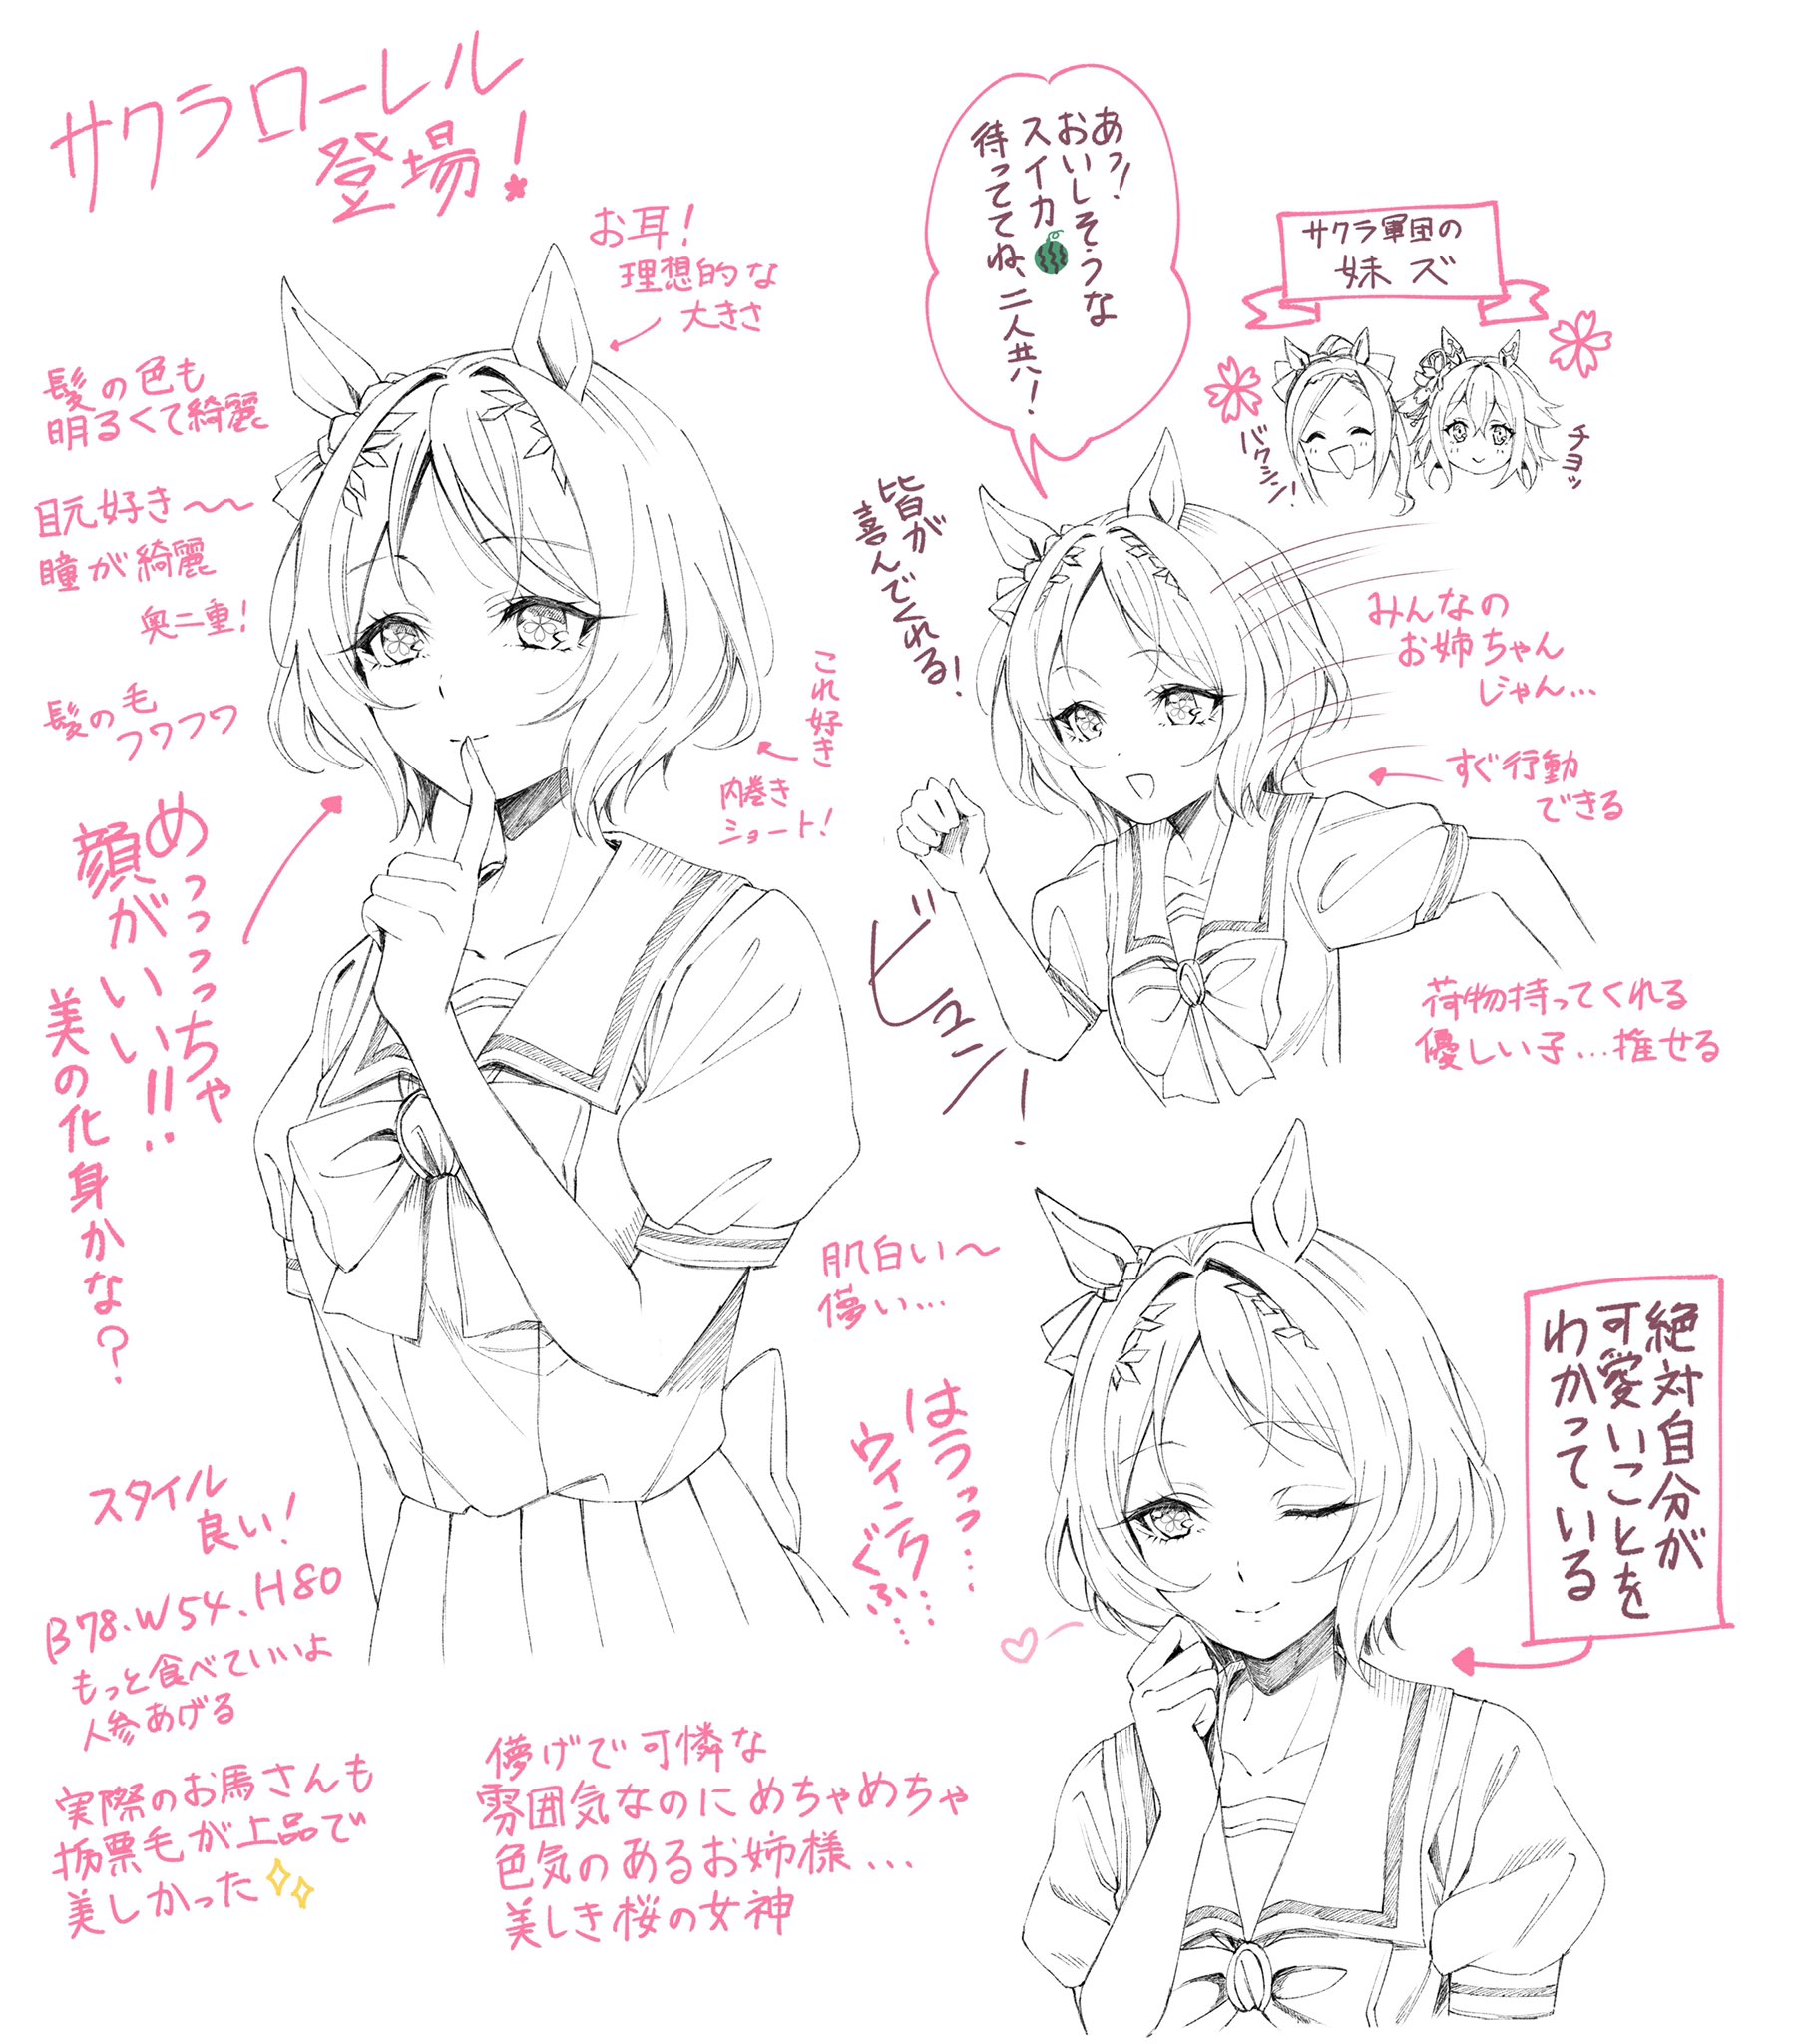 サクラローレル
登場！
お耳！
理想的な
大きさ
髪の色も
明るくて綺麗
目元好き〜〜
瞳が綺麗
奥二重！
髪の毛
フワフワ
これ好き
内巻き
ショート！
めっっっっっちゃ
顔がいい!!
美の化身かな？
スタイル
良い！
B78.W54.H80
もっと食べていいよ
人参あげる
実際のお馬さんも
栃栗毛が上品で
美しかった
あっ！
おいしそうな
スイカ
待っててね、二人共！
サクラ軍団の
妹ズ
バクシン！
チヨッ
皆が
喜んでくれる！
みんなの
お姉ちゃん
じゃん…
すぐ行動
できる
ビュン！
荷物持ってくれる
優しい子…推せる
肌白い〜
儚い…
はうっっ…
ウィンク…
ぐふ…
絶対自分が
可愛いことを
わかっている
儚げで可憐な
雰囲気なのにめちゃめちゃ
色気のあるお姉様…
美しき桜の女神